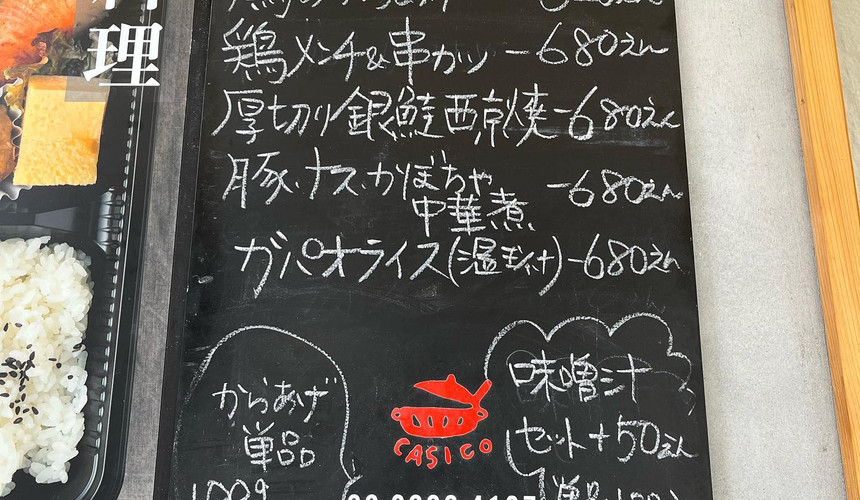 理
鶏メンチ&串カツ-680えん
厚切り銀鮭西京焼-680えん
豚、ナス、かぼちゃ
中華煮 -680えん
ガパオライス(温玉付)-680えん
からあげ
単品
100g
CASICO
味噌汁
セット+50えん